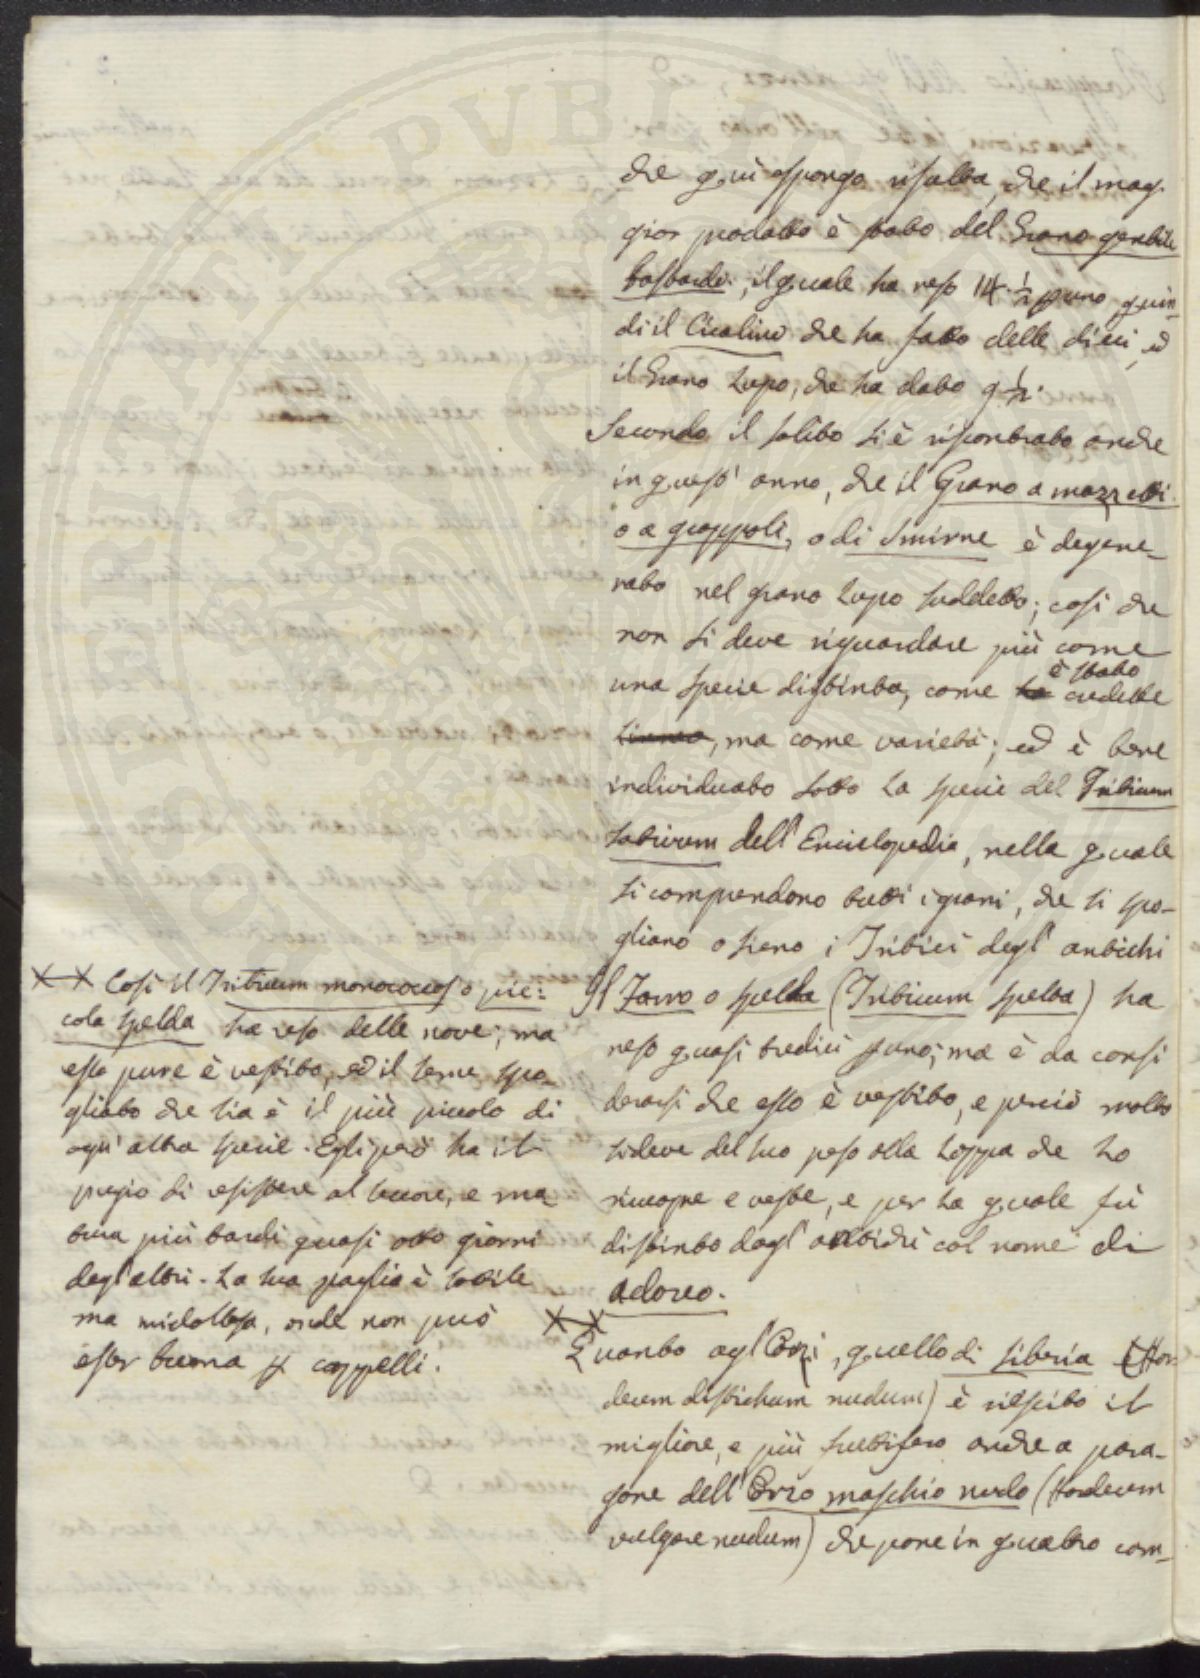 che qui espongo risulta, che il mag-
gior prodotto è stato del Grano gentile
bastardo, il quale ha reso 14 1/2 per uno quin-
di il Cicalino che ha fatto delle dieci, ed
il Grano Lupo, che ha dato 9 1/2.
Secondo il solito si è riscontrato anche
in quest' anno, che il Grano a mazzetti
o a grappoli, o di Smirne è degene-
rato nel grano Lupo suddetto; così che
non si deve riguardare più come
una specie distinta, come è stato creduto
Linneo, ma come varietà; ed è bene
individuato sotto la specie del Triticum
sativum dell' Enciclopedia, nella quale
si comprendono tutti i grani, che si spo-
gliano o sieno i Tritici degl' antichi
Il Farro o spelda (Triticum spelta) ha
reso quasi tredici per uno; ma è da consi
derarsi che esso è vestito, e perciò molto
si deve del suo peso alla loppa che lo
ricuopre e veste, e per la quale fù
distinto dagl' antichi col nome di
adoreo.
Quanto agl' Orzi, quello di Siberia (Hor-
deum distichum nudum) è riescito il
migliore, e più fruttifero anche a para-
gone dell' Orzo maschio nudo (Hordeum
vulgare nudum) che pone in quattro com-
Così il Triticum monococcos o pic-
cola spelda ha reso delle nove; ma
esso pure è vestito, ed il seme spo-
gliato che sia è il più piccolo di
ogn' altra specie. Egli però ha il
pregio di resistere al
tura più tardi quasi otto giorni
degl' altri. La sua paglia è sottile
ma midollosa, onde non può
esser buona p cappelli.